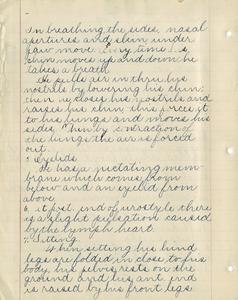 In breathing the sides, nasal
apertures and skin under
jaw move. Every time
skin moves up and down he
takes a breath
He pulls air in thru his
nostrils by lowering his chin
then he closes his nostrils and
raises his chin this forces it
to his lungs and moves his
sides, then by contraction of
the lungs the air is forced
out.
Eyelids
He has a nictating mem-
brane which comes from
below and an eyelid from
above
at post. end of urostyle there
is a slight pulsation caused
by the lymph heart
Sitting
When sitting his hind
legs are folded in close to his
body, his elbows rest on the
ground and his ant. end
is raised by his front legs